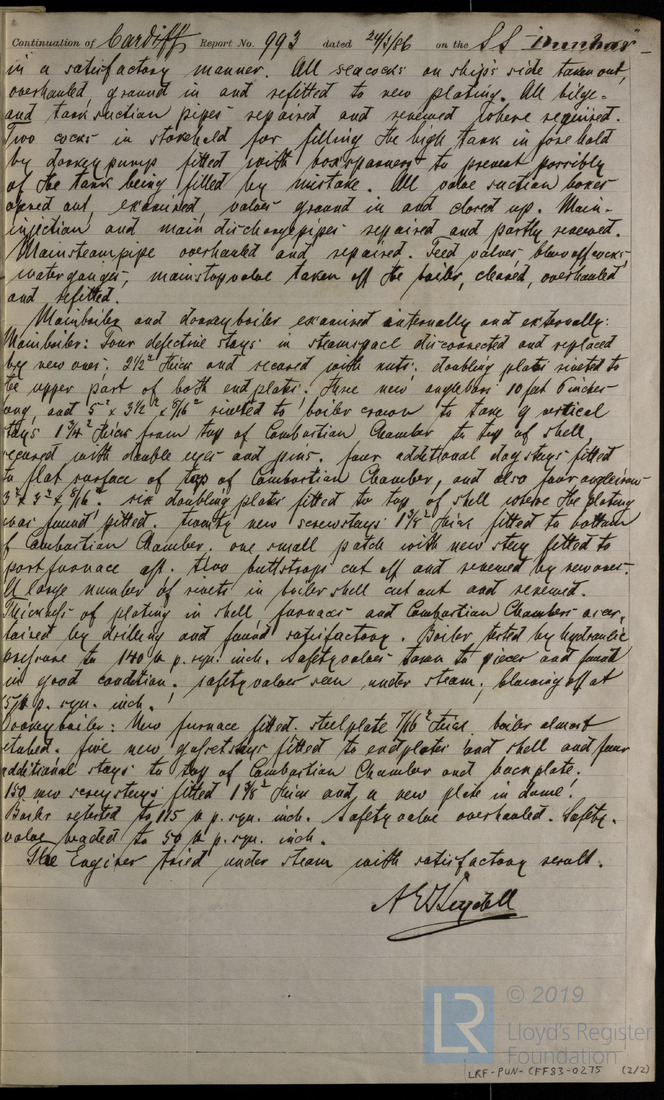 Continuation of Cardiff Report No. 993 dated 24/3/86 on the SS "Dunbar"
in a satisfactory manner. All seacocks on ship's side taken out,
overhauled, ground in and refitted to new plating. All bilge-
and tank suction pipes repaired and renewed where required.
Two cocks in stokehold for filling the high tank in fore hold
by donkeypump fitted with boxspanners to prevent possibly
of the tank being filled by mistake. All valve suction boxes
opened out, examined, valves ground in and closed up. Main-
injection and main dischargepipes repaired and partly renewed.
Mainsteampipe overhauled and repaired. Feed valves, blow off cocks,
watergauges, mainstopvalve taken off the boiler, cleaned, overhauled
and refitted.
Mainboiler and donkeyboiler examined internally and externally:
Mainboiler: Four defective stays in steamspace disconnected and replaced
by new ones, 2½" thick and secured with nuts. doubling plates riveted to
the upper part of both endplates. three new anglebars 10 feet 6 inches
long, and 5" x 3½" x 9/16" riveted to boiler crown to take 9 vertical
stays 1¾" thick from top of Combastian Chamber to top of shell,
secured with double eyes and pins. four additional dogstays fitted
to flat surface of top of Combastian Chamber, and also four angleirons
3" x 3" x 5/16". six doubling plates fitted to top of shell where the plating
was found pitted. twenty new screwstays 1⅜" thick fitted to bottom
of Combastian Chamber. one small patch with new stay fitted to
port furnace aft. two buttstraps cut off and renewed by new ones.
A large number of rivets in boiler shell cut out and renewed.
Thickness of plating in shell, furnaces and Combastian Chambers ascer-
tained by drilling and found satisfactory. Boiler tested by hydraulic
pressure to 140 lb p. squ. inch. Safetyvalves taken to pieces and found
in good condition. safetyvalves seen under steam, blowing off at
lb p. squ. inch.
Donkeyboiler: New furnace fitted. steelplate 7/16" thick. boiler almost
five new gussetstays fitted to endplates and shell and four
additional stays to top of Combastian Chamber and backplate.
150 new screwstays fitted 1⅜" thick and a new plate in dome.
Boiler retested to 115 lb p. squ. inch. Safetyvalve overhauled. Safety-
valve loaded to 50 lb p. squ. inch.
The Engines tried under steam with satisfactory result.
© 2019
LR
Lloyd's Register
Foundation
LRF-PUN-CFF83-0275 (2/2)